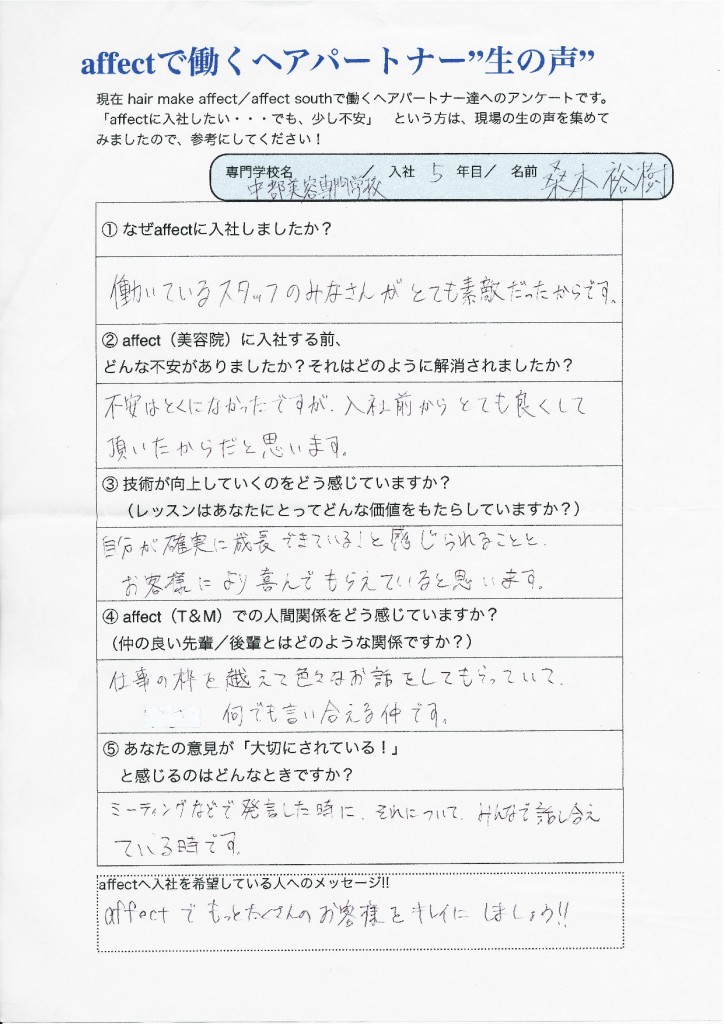 affectで働くヘアパートナー”生の声”
現在 hair make affect／affect southで働くヘアパートナー達へのアンケートです。
「affectに入社したい・・・でも、少し不安」　という方は、現場の生の声を集めて
みましたので、参考にしてください！
専門学校名　　　／　入社　5　年目／　名前　桑本 裕樹
中部美容専門学校
① なぜaffectに入社しましたか？
働いているスタッフのみなさんがとても素敵だったからです。
② affect（美容院）に入社する前、
どんな不安がありましたか？それはどのように解消されましたか？
不安はとくになかったですが、入社前からとても良くして
頂いたからだと思います。
③ 技術が向上していくのをどう感じていますか？
（レッスンはあなたにとってどんな価値をもたらしていますか？）
自分が確実に成長できている！と感じられることと、
お客様により喜んでもらえていると思います。
④ affect（T＆M）での人間関係をどう感じていますか？
（仲の良い先輩／後輩とはどのような関係ですか？）
仕事の枠を越えて色々なお話をしてもらっていて、
何でも言い合える仲です。
⑤ あなたの意見が「大切にされている！」
と感じるのはどんなときですか？
ミーティングなどで発言した時に、それについて、みんなで話し合え
ている時です。
affectへ入社を希望している人へのメッセージ!!
affectでもっとたくさんのお客様をキレイにしましょう!!